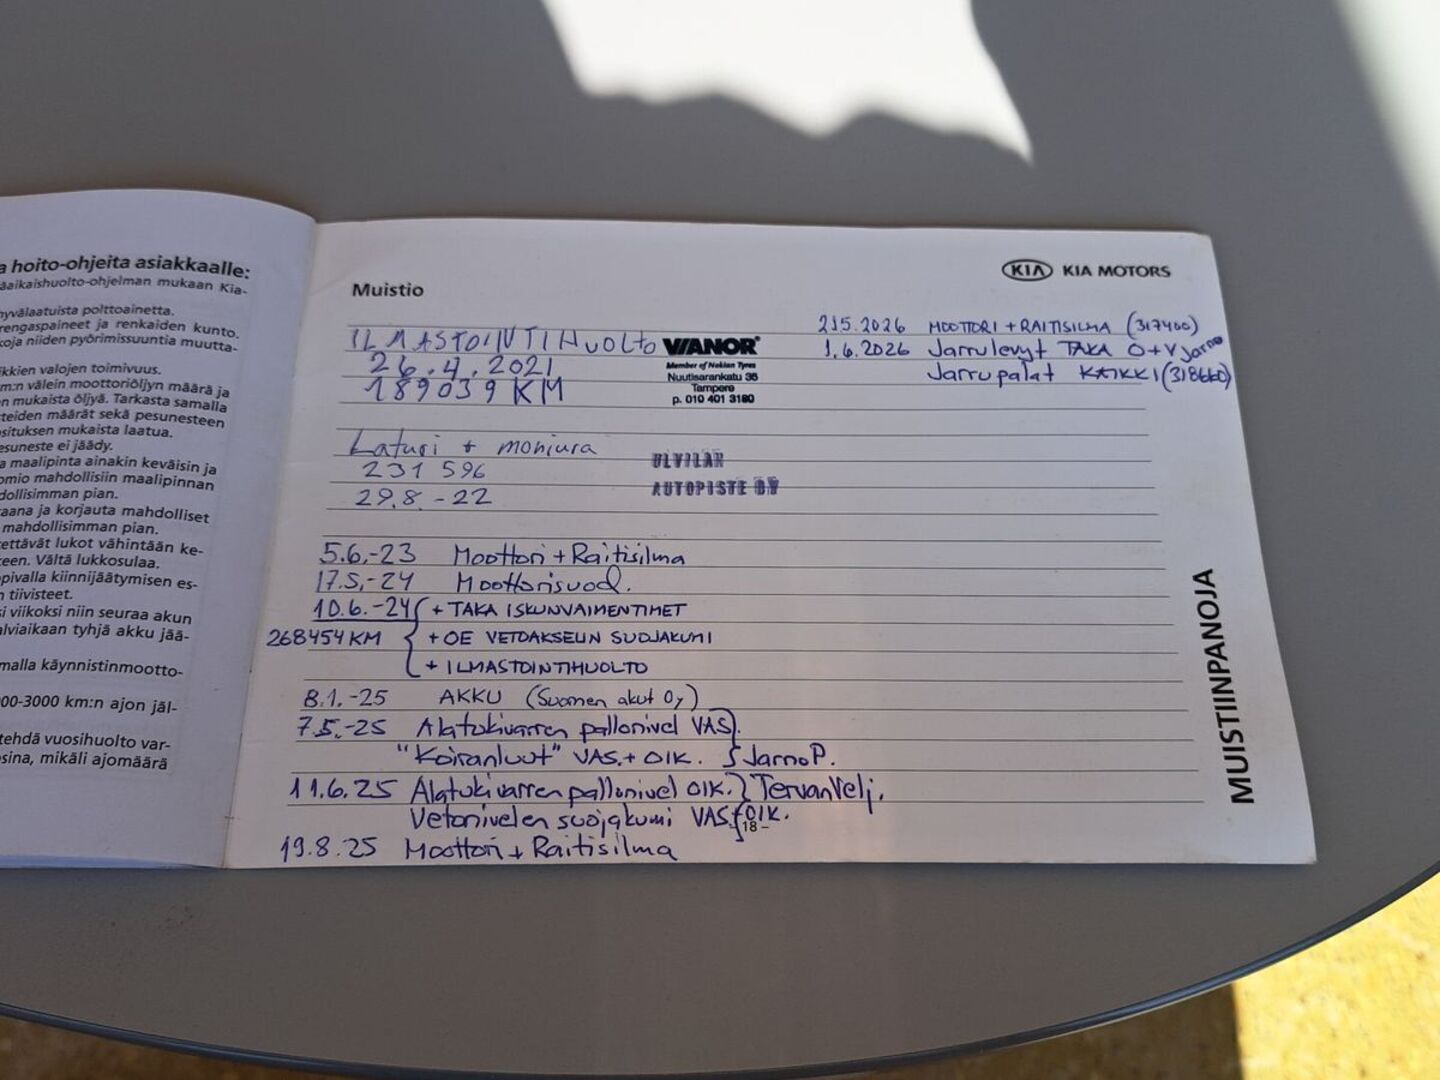 a hoito-ohjeita asiakkaalle:
äaikaishuolto-ohjelman mukaan Kia-
hyvälaatuista polttoainetta.
rengaspaineet ja renkaiden kunto.
koja niiden pyörimissuuntia muutta-
ikkien valojen toimivuus.
m:n välein moottoriöljyn määrä ja
n mukaista öljyä. Tarkasta samalla
teiden määrät sekä pesunesteen
osituksen mukaista laatua.
esuneste ei jäädy.
a maalipinta ainakin keväisin ja
omio mahdollisiin maalipinnan
dollisimman pian.
aana ja korjauta mahdolliset
mahdollisimman pian.
ettävät lukot vähintään ke-
keen. Vältä lukkosulaa.
pivalla kiinnijäätymisen es-
n tiivisteet.
si viikoksi niin seuraa akun
alviaikaan tyhjä akku jää-
malla käynnistinmootto-
00-3000 km:n ajon jäl-
tehdä vuosihuolto var-
osina, mikäli ajomäärä
KIA KIA MOTORS
Muistio
ILMASTOINTIHUOLTO
26.4.2021
189039 KM
VIANOR
Member of Nokian Tyres
Nuutisarankatu 35
Tampere
p. 010 401 3180
2.1.5.2026 MOOTTORI + RAITISILMA (317400)
1.6.2026 Jarrulevyt TAKA O+V Jarno
Jarrupalat KAIKKI (318660)
Laturi + moniura
231 596
29.8.-22
ULVILAN
AUTOPISTE OY
5.6.-23 Moottori + Raitisilma
17.5.-24 Moottorisuod.
10.6.-24 + TAKA ISKUNVAIMENTIMET
268454 KM + OE VETOAKSELIN SUOJAKUMI
+ ILMASTOINTIHUOLTO
8.1.-25 AKKU (Suomen akut Oy)
7.5.-25 Alatukivarren pallonivel VAS.
"Koiranluut" VAS. + OIK. } Jarno P.
11.6.25 Alatukivarren pallonivel OIK. } TervanVelj.
Vetonivelen suojakumi VAS + OIK.
- 18 -
19.8.25 Moottori + Raitisilma
MUISTIINPANOJA